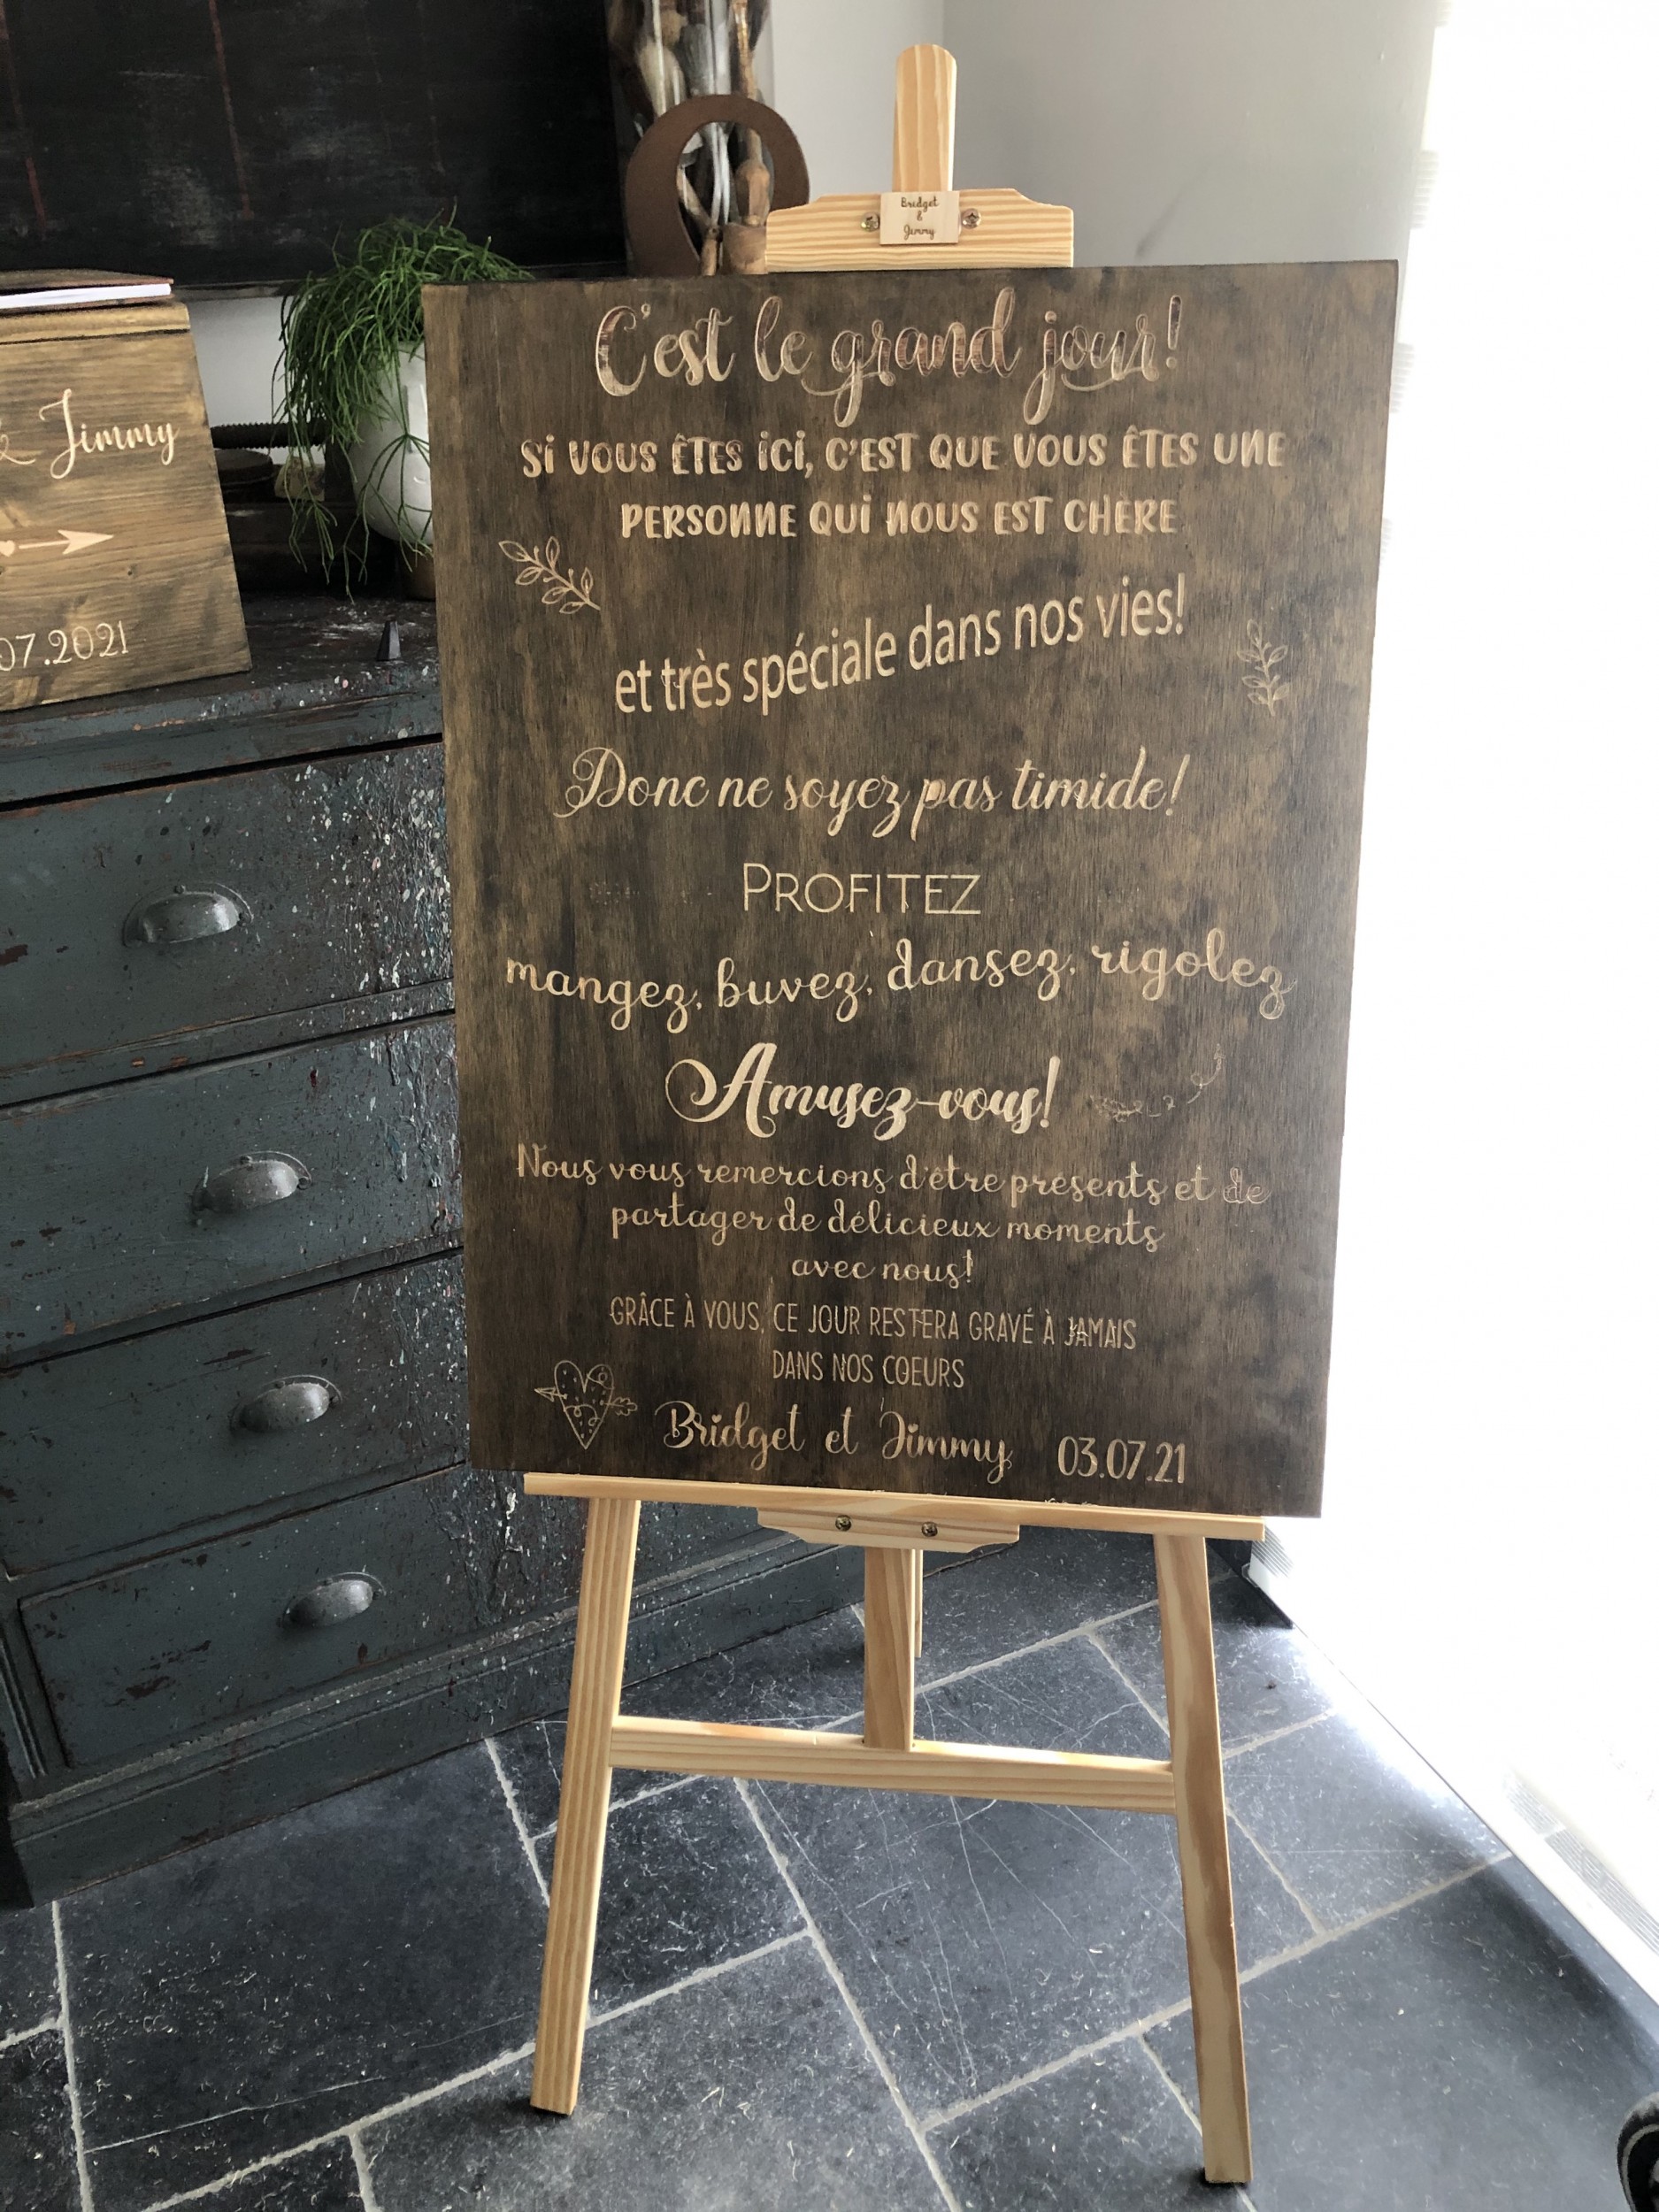 Bridget
&
Jimmy
C'est le grand jour!
Si vous êtes ici, c'est que vous êtes une
personne qui nous est chère
et très spéciale dans nos vies!
Donc ne soyez pas timide!
PROFITEZ
mangez, buvez, dansez, rigolez
Amusez-vous!
Nous vous remercions d'être présents et de
partager de délicieux moments
avec nous!
GRÂCE À VOUS, CE JOUR RESTERA GRAVÉ À JAMAIS
DANS NOS COEURS
Bridget et Jimmy 03.07.21
& Jimmy
07.2021